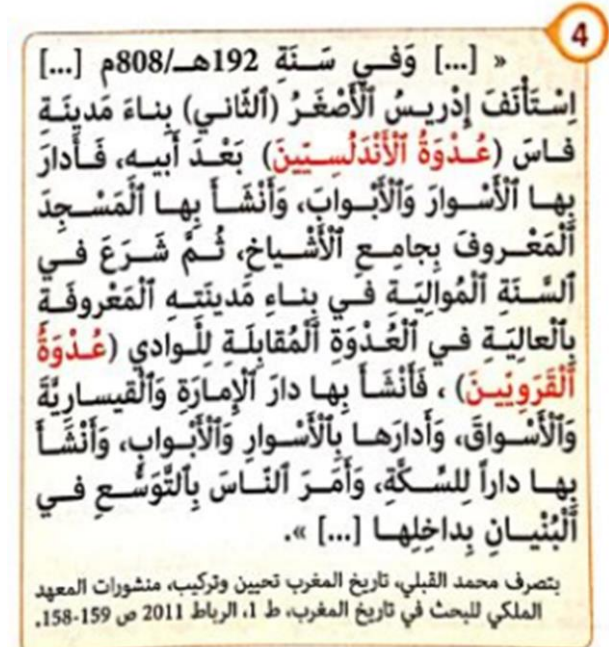 4
« [...] وَفـي سَـنَةِ 192هـ/808م [...]
اِسْتَأْنَفَ إِدْريـسُ ٱلْأَصْغَـرُ (ٱلثّانـي) بِنـاءَ مَدينَـةِ
فـاسَ (عُـدْوَةُ ٱلْأَنْدَلُسِـيّينَ) بَعْـدَ أَبيـه، فَـأَدارَ
بِهـا ٱلْأَسْـوارَ وَٱلْأَبْـوابَ، وَأَنْشَـأَ بِهـا ٱلْمَسْـجِدَ
ٱلْمَعْـروفَ بِجامِـعِ ٱلْأَشْـياخِ، ثُـمَّ شَـرَعَ فـي
ٱلسَّـنَةِ ٱلْمُوالِيَـةِ فـي بِنـاءِ مَدينَتِـهِ ٱلْمَعْروفَـةِ
بِٱلْعالِيَـةِ فـي ٱلْعُـدْوَةِ ٱلْمُقابِلَـةِ لِلْـوادي (عُـدْوَةُ
ٱلْقَرَوِيّيـنَ) ، فَأَنْشَـأَ بِهـا دارَ ٱلْإِمـارَةِ وَٱلْقيسـارِيَّةَ
وَٱلْأَسْـواقَ، وَأَدارَهـا بِٱلْأَسْـوارِ وَٱلْأَبْـوابِ، وَأَنْشَـأَ
بِهـا داراً لِلسِّـكَّةِ، وَأَمَـرَ ٱلنّـاسَ بِٱلتَّوَسُّـعِ فـي
ٱلْبُنْيـانِ بِداخِلِهـا [...] ».
بتصرف محمد القبلي، تاريخ المغرب تحيين وتركيب، منشورات المعهد
الملكي للبحث في تاريخ المغرب، ط 1، الرباط 2011 ص 159-158.